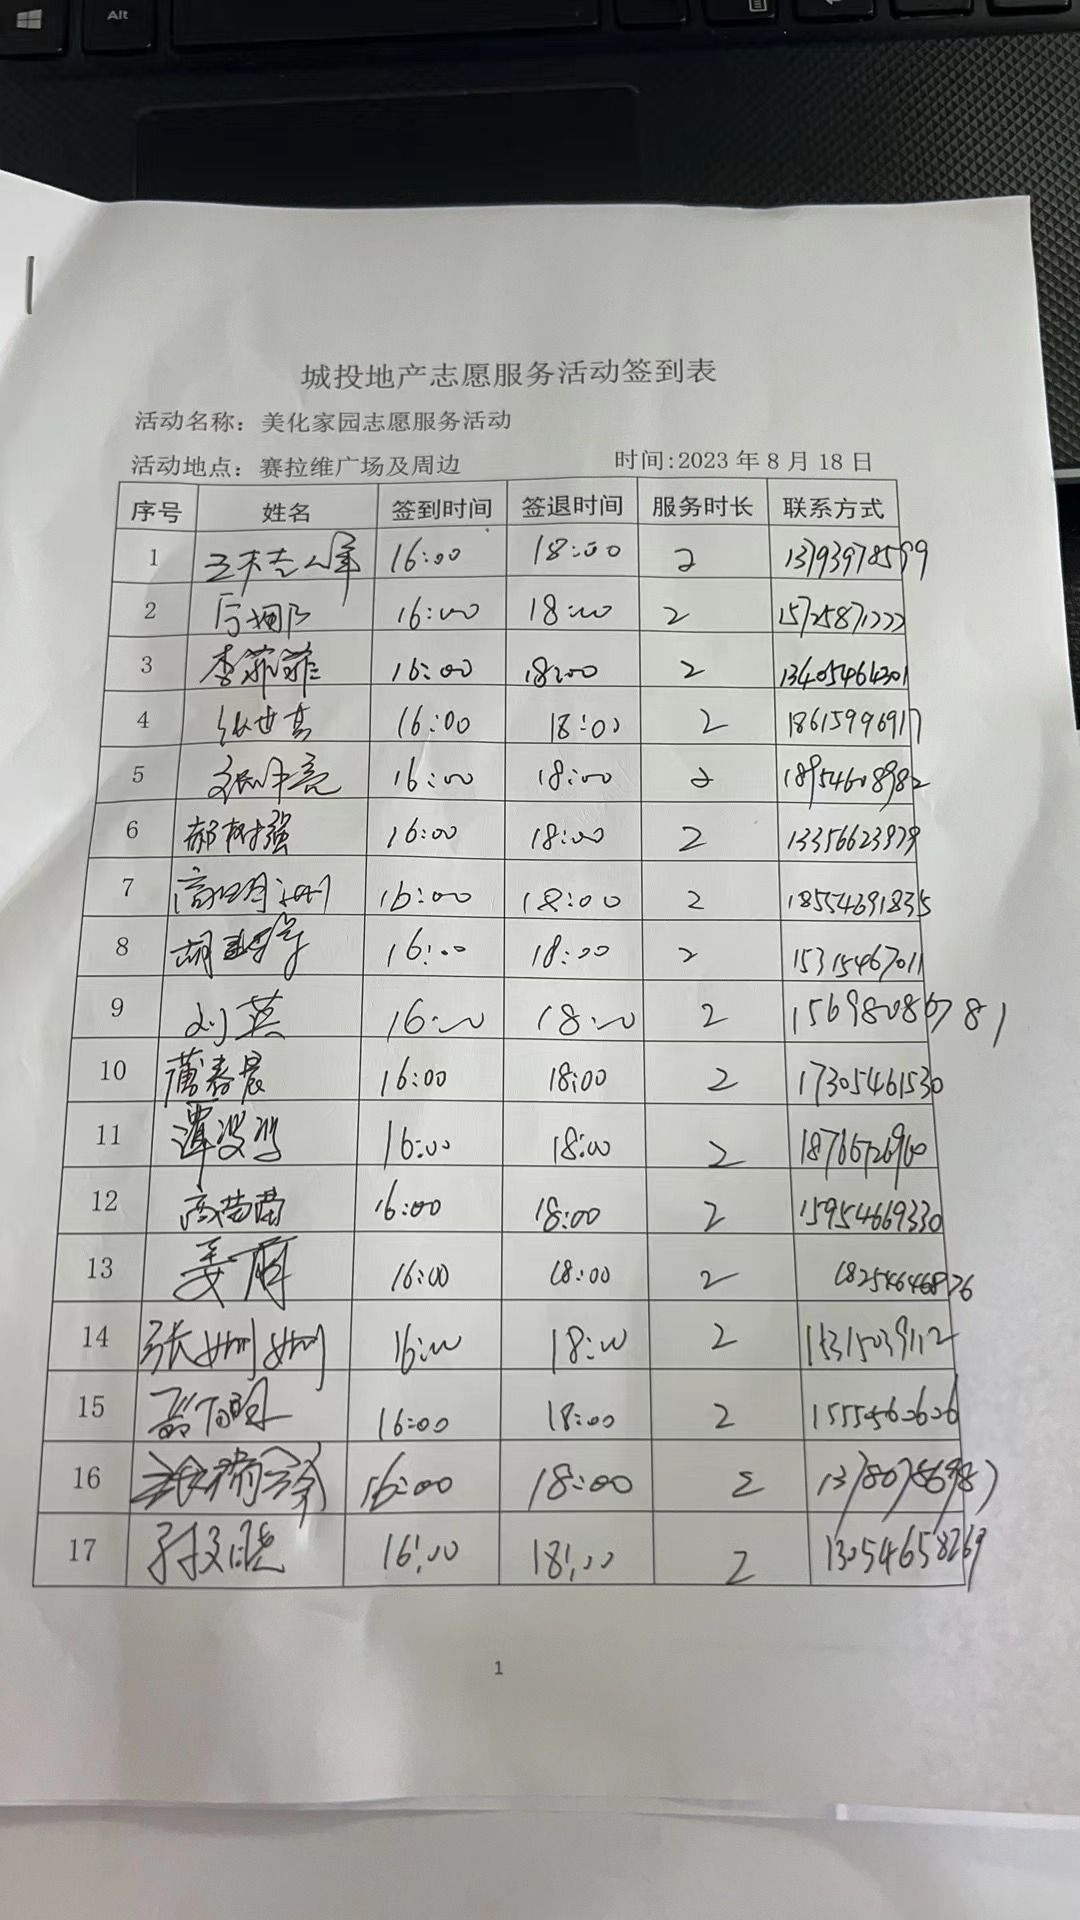 Alt
城投地产志愿服务活动签到表
活动名称：美化家园志愿服务活动
活动地点：赛拉维广场及周边 时间:2023 年 8 月 18 日
序号 姓名 签到时间 签退时间 服务时长 联系方式
1 16:00 18:00 2 13793978599
2 16:00 18:00 2 15725871222
3 李菲菲 16:00 18:00 2 13405464301
4 张世高 16:00 18:00 2 18615996917
5 16:00 18:00 2 18954608982
6 郝树强 16:00 18:00 2 13356623979
7 16:00 18:00 2 18554691835
8 16:00 18:00 2 15315467011
9 刘英 16:00 18:00 2
10 蒲春晨 16:00 18:00 2 17305461530
11 16:00 18:00 2
12 高苗苗 16:00 18:00 2 15954669330
13 姜雨 16:00 18:00 2 18254646876
14 张姗姗 16:00 18:00 2 15315039112
15 16:00 18:00 2
16 16:00 18:00 2 13780786987
17 孙文晓 16:00 18:00 2 13054658269
1